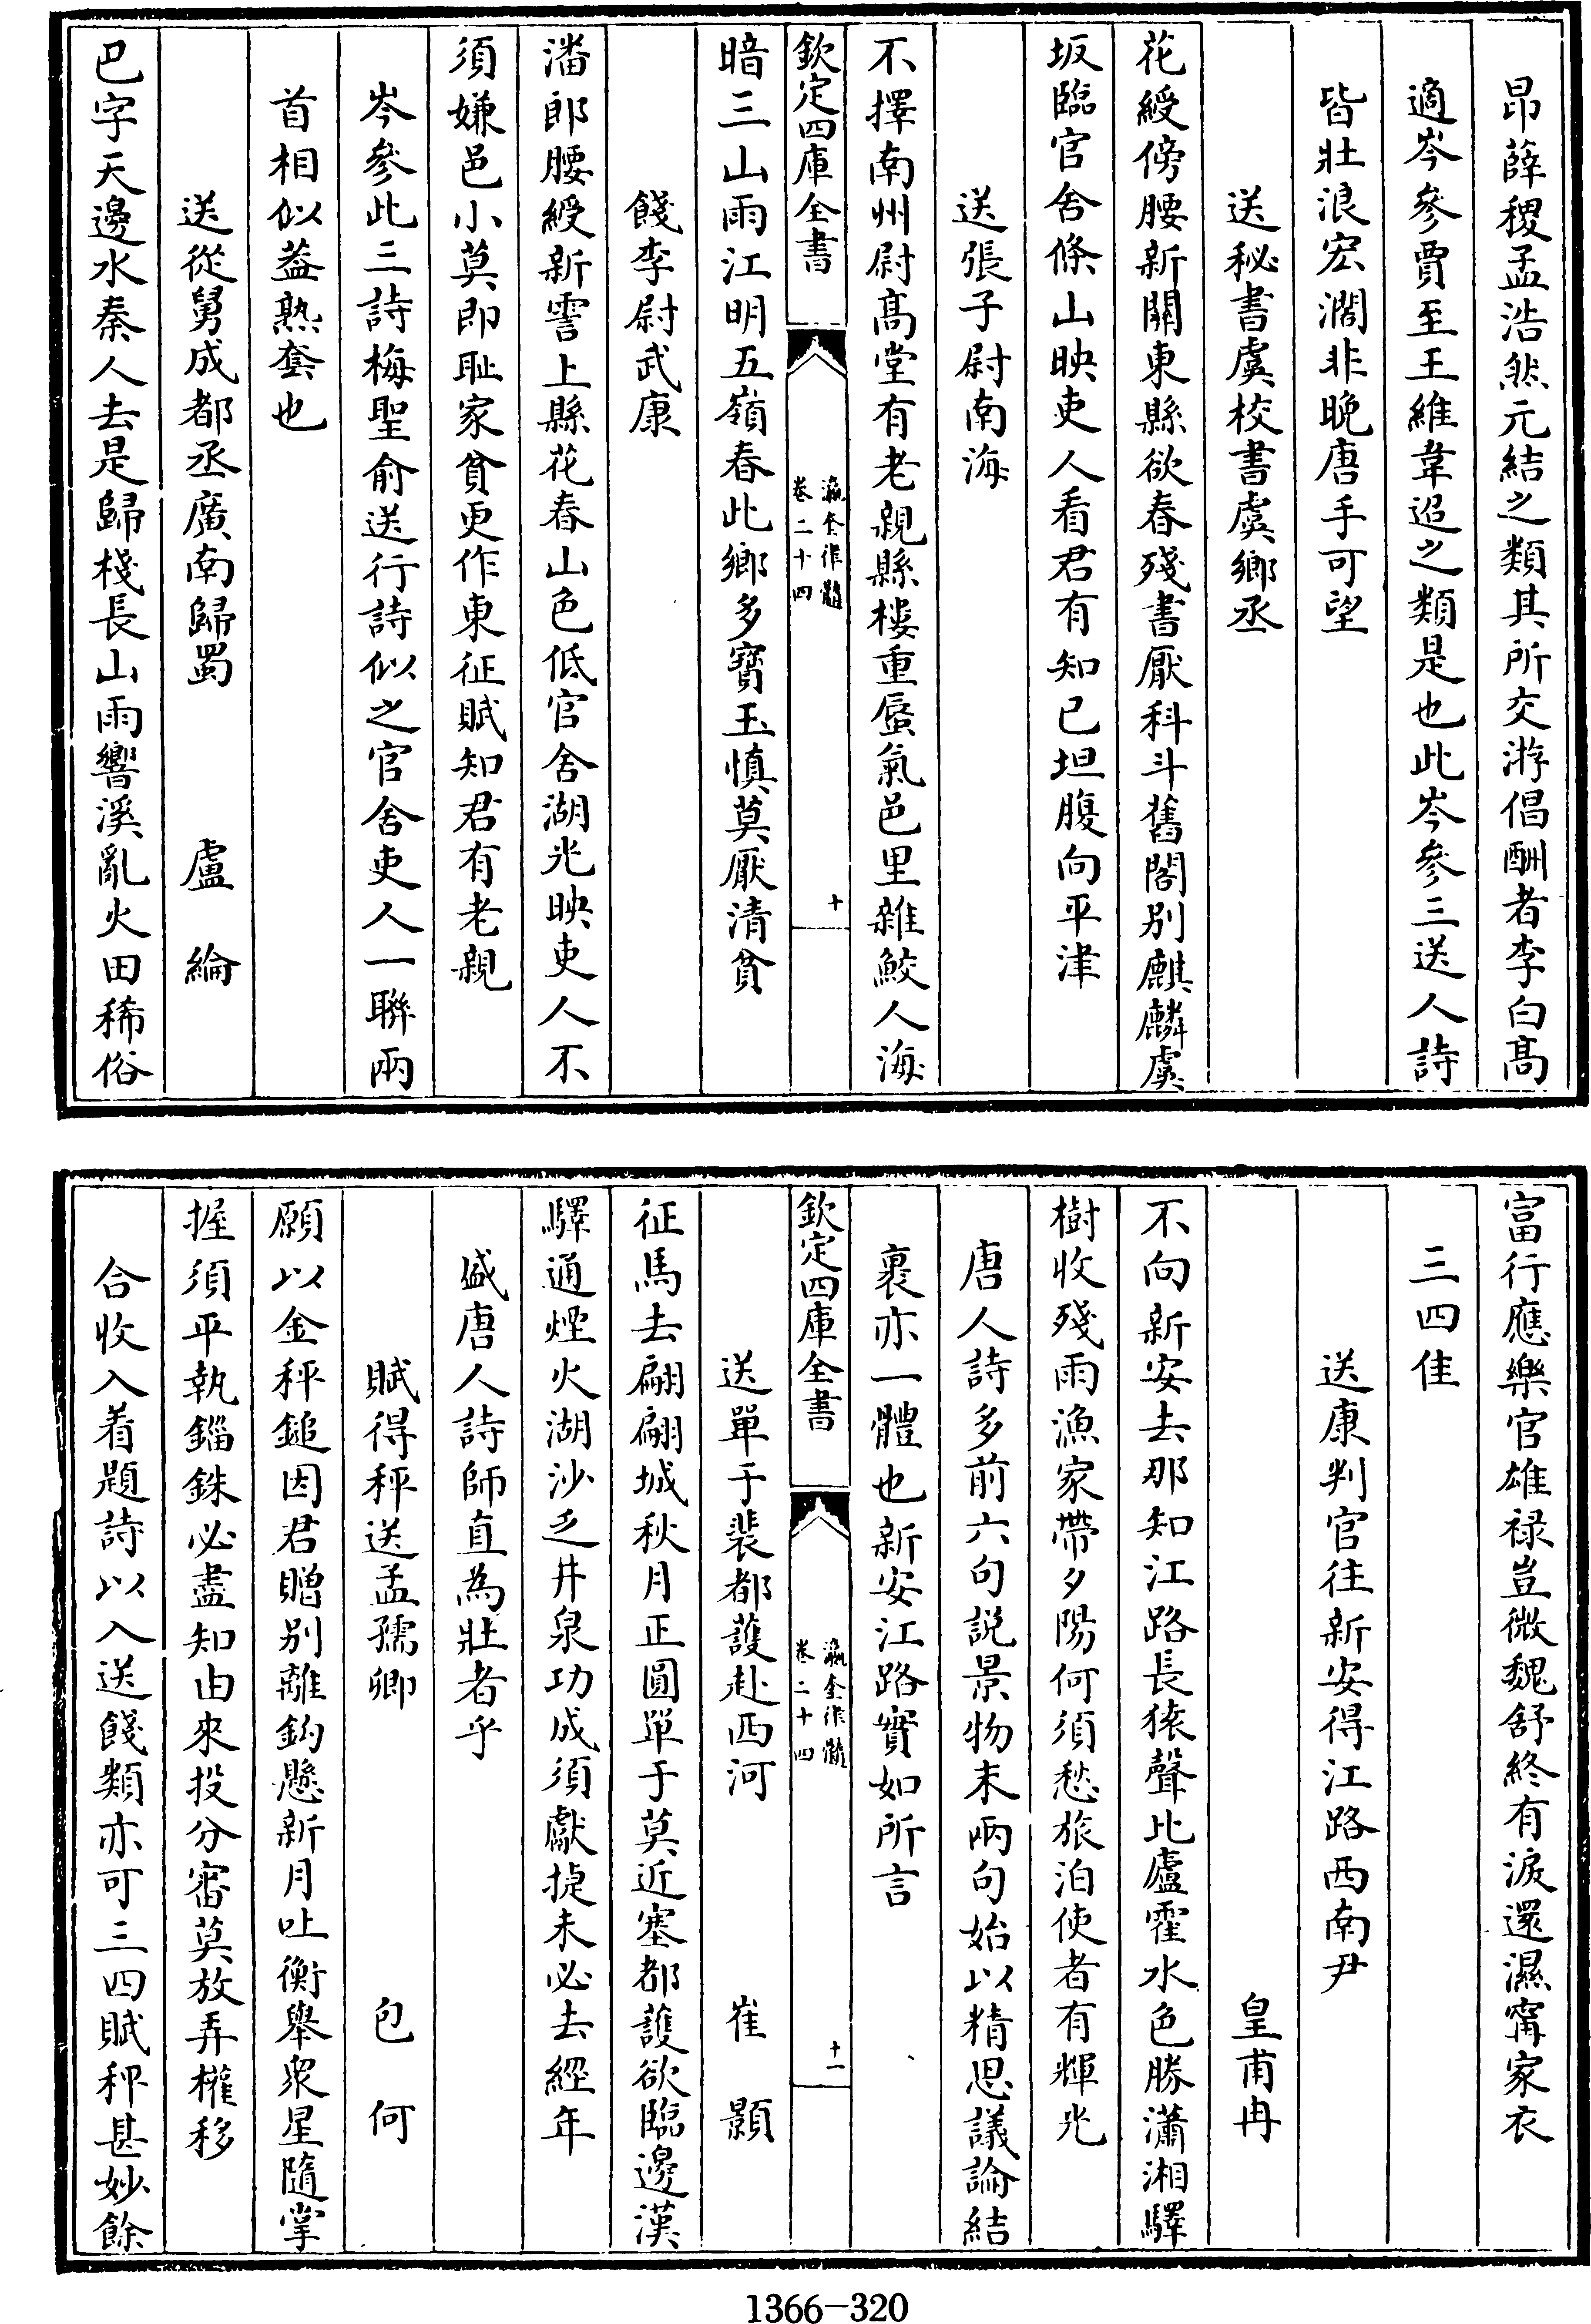 昂薛稷孟浩然元結之類其所交游倡酬者李白高
適岑參賈至王維韋迢之類是也此岑參三送人詩
皆壯浪宏濶非晚唐手可望
送秘書虞校書虞鄉丞
花綬傍腰新關東縣欲春殘書厭科斗舊閣别麒麟虞
坂臨官舍條山映吏人看君有知已坦腹向平津
送張子尉南海
不擇南州尉髙堂有老親縣樓重蜃氣邑里雜鮫人海
欽定四庫全書
瀛奎律髓
卷二十四
十
暗三山雨江明五嶺春此鄉多寳玉慎莫厭清貧
餞李尉武康
潘郎腰綬新霅上縣花春山色低官舍湖光映吏人不
須嫌邑小莫即耻家貧更作東征賦知君有老親
岑參此三詩梅聖俞送行詩似之官舍吏人一聯兩
首相似葢熟套也
送從舅成都丞廣南歸蜀 盧綸
巴字天邊水秦人去是歸棧長山雨響溪亂火田稀俗
富行應樂官雄禄豈微魏舒終有淚還濕甯家衣
三四佳
送康判官往新安得江路西南尹
皇甫冉
不向新安去那知江路長猿聲比廬霍水色勝瀟湘驛
樹收殘雨漁家帶夕陽何須愁旅泊使者有輝光
唐人詩多前六句説景物末兩句始以精思議論結
裹亦一體也新安江路實如所言
欽定四庫全書
瀛奎律髓
卷二十四
十一
送單于裴都䕶赴西河 崔顥
征馬去翩翩城秋月正圓單于莫近塞都䕶欲臨邊漢
驛通煙火湖沙乏井泉功成須獻捷未必去經年
盛唐人詩師直為壯者乎
賦得秤送孟孺卿 包何
願以金秤鎚因君贈别離鈎懸新月吐衡舉衆星隨掌
握須平執錙銖必盡知由來投分審莫放弄權移
合收入着題詩以入送餞類亦可三四賦秤甚妙餘
1366-320